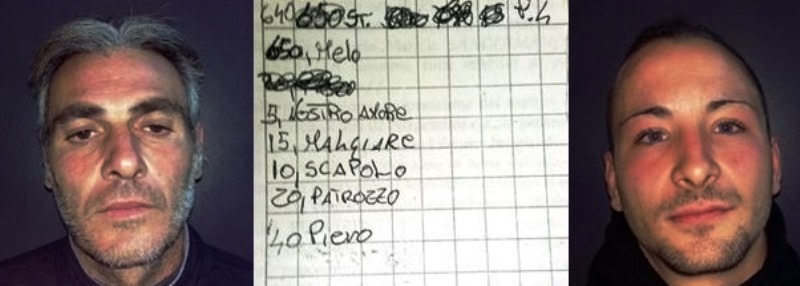 640 650 ST. P.L
650, Melo
5, NOSTRO AMORE
15, MANGIARE
10, SCAPOLO
20, PATROZZO
40 Piero